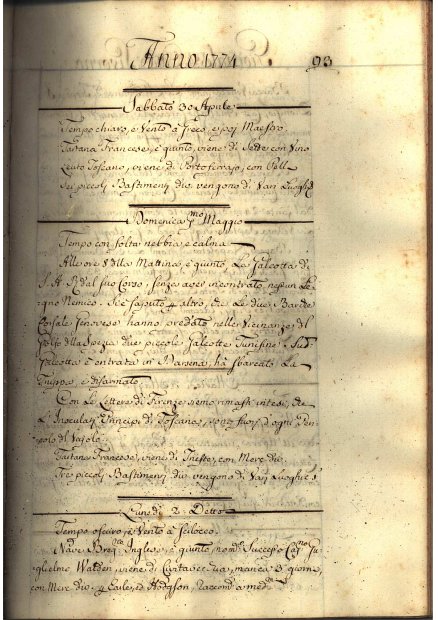 Anno 1774 93
Sabbato 30 Aprile
Tempo chiaro, e Vento à Greco, e poi Maestro
Tartana Francese, è giunto, viene di Sette con Vino
Leuto Toscano, viene di Portoferrajo, con Pelli
Sei piccoli Bastimenti div. vengono di Varj Luoghi
Domenica P.mo Maggio
Tempo con folta nebbia, e calma
Alle ore 8 della Mattina, è giunto, La Galeotta di
S. A. R. dal suo Corso, senza aver incontrato nessun Le-
gno Nemico. Si è saputo p altro, che Le due Barche
Corsale Genovese hanno predato nelle Vicinanze del
Golfo della Spezia due piccole Galeotte Tunisine. Sud.a
Galeotta è entrata in Darsena, ha sbarcato Le
Truppe, e disarmato
Con Le Lettere di Firenze siemo rimasti intesi, che
L'Inoculati Principi di Toscana, sono fuori d'ogni Peri-
colo del Vajolo.
Tartana Francese, viene di Trieste, con Merc. div.
Tre piccoli Bastimenti div. vengono di Varj Luoghi
Lunedì 2. Detto
Tempo oscuro, e Vento à Scilocco.
Nave Inglese, è giunto, nom.
Walden, viene di in 3 giorni,
con Merc. div. p Hodgson, Raccom. a med.